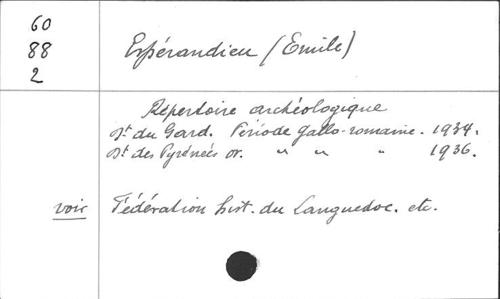 60
88
2
Espérandieu (Emile)
Répertoire archéologique
Dt du Gard. Période gallo-romaine. 1934.
Dt des Pyrénées or. " " " 1936.
voir Fédération hist. du Languedoc. etc.